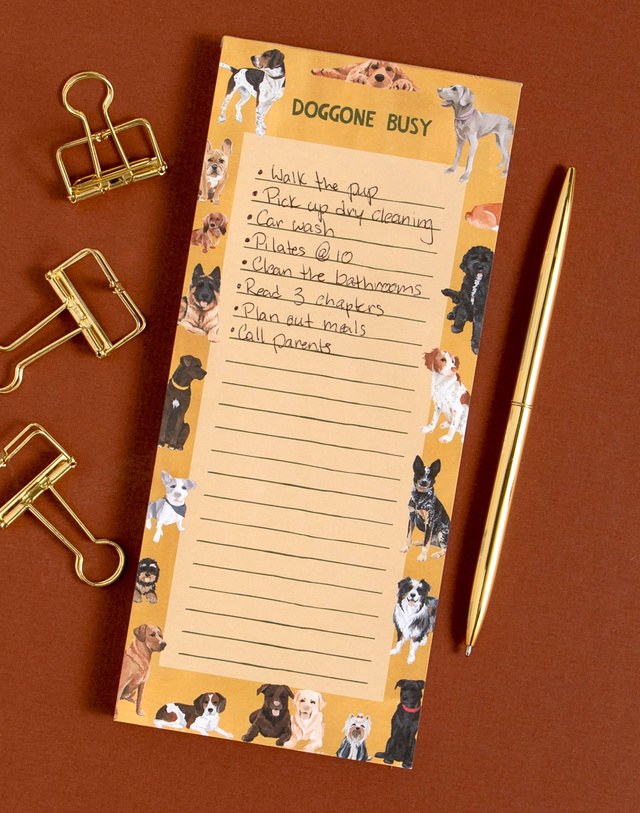 DOGGONE BUSY
• Walk the pup
• Pick up dry cleaning
• Car wash
• Pilates @ 10
• Clean the bathrooms
• Read 3 chapters
• Plan out meals
• Call parents